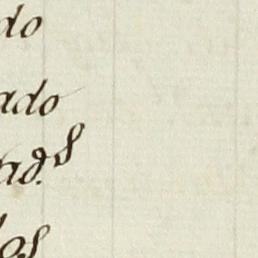 do
ado
ad.s
os